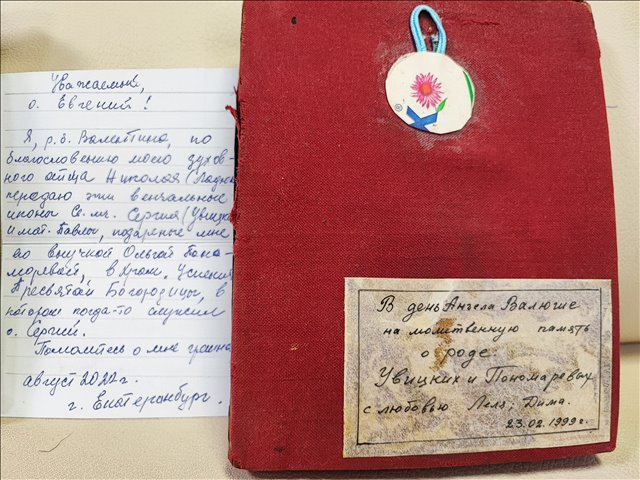 Уважаемый,
о. Евгений!
Я, р.б. Валентина, по
благословению моего духов-
ного отца Николая (Ладюк
передаю эти венчальные
иконы Св. мч. Сергия (Увицк
и мат. Павлы, подаренные мне
её внучкой Ольгой Поно-
марёвой, в Храм Успения
Пресвятой Богородицы, в
котором когда-то служил
о. Сергий.
Помолитесь о мне грешно
август 2022 г.
г. Екатеринбург.
В день Ангела Валюше
на молитвенную память
о роде
Увицких и Пономаревых
с любовью Леля, Дима.
23.02.1999г.